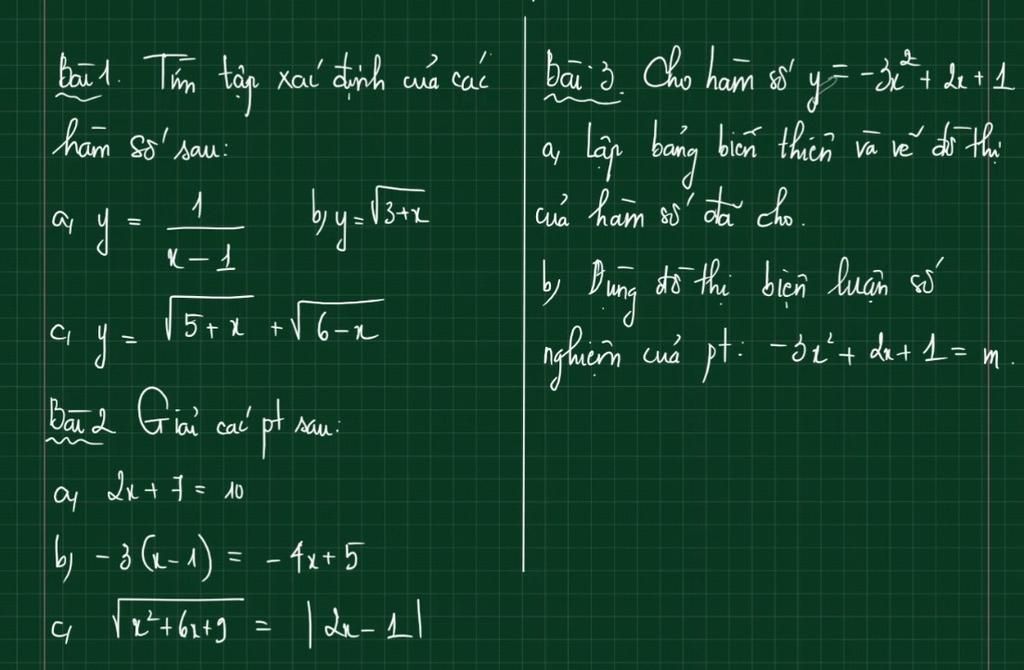 Bài 1. Tìm tập xác định của các
hàm số sau:
a, y = 1/(x-1)   b, y = √(3+x)
c, y = √(5+x) + √(6-x)
Bài 2 Giải các pt sau:
a, 2x + 7 = 10
b, -3(x-1) = -4x+5
c, √(x²+6x+9) = |2x-1|
Bài 3. Cho hàm số y = -3x² + 2x + 1
a, Lập bảng biến thiên và vẽ đồ thị
của hàm số đã cho.
b, Dùng đồ thị biện luận số
nghiệm của pt: -3x² + 2x + 1 = m.